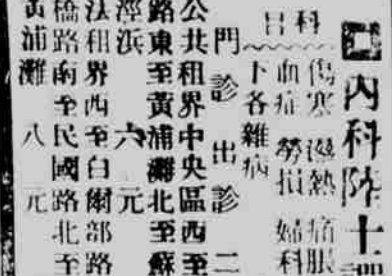 内科陸士諤
科目
傷寒濕熱痛眼
血症勞損婦科
下各雜病
門診出診二
公共租界中央區西至
路東至黃浦灘北至蘇
涇浜六元
法租界西至白爾部路
橋路南至民國路北至
黃浦灘八元